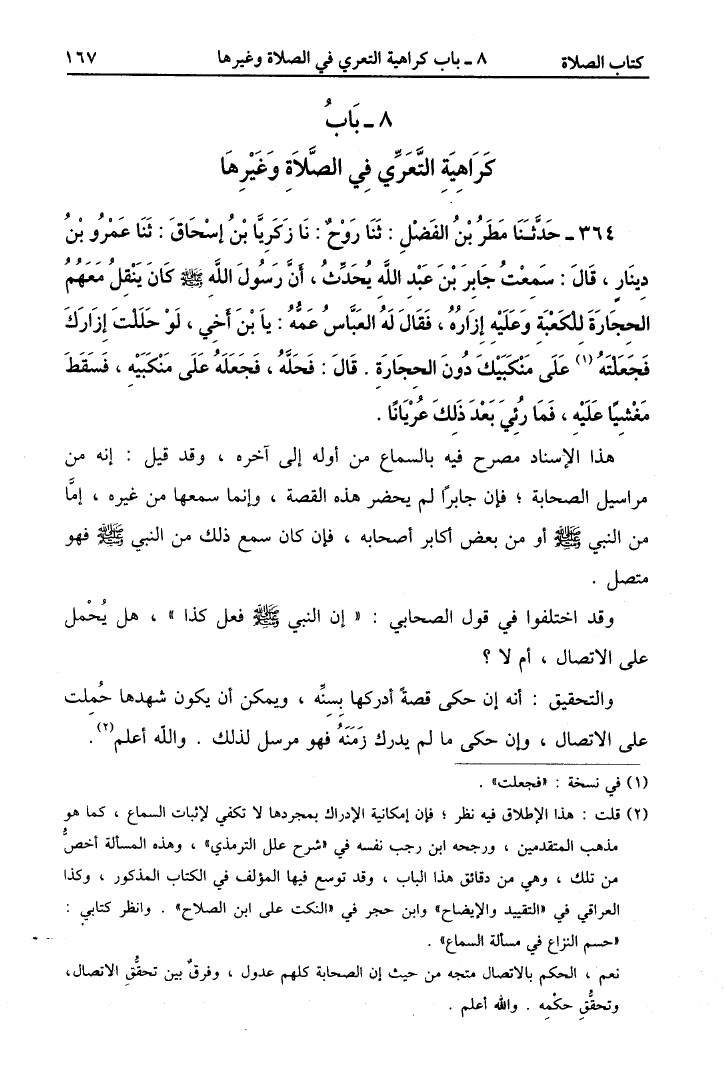 كتاب الصلاة ٨ ـ باب كراهية التعري في الصلاة وغيرها ١٦٧
٨ ـ بَابُ
كَرَاهِيَةِ التَّعَرِّي فِي الصَّلَاةِ وَغَيْرِهَا
٣٦٤ ـ حَدَّثَنَا مَطَرُ بْنُ الفَضْلِ : ثَنَا رَوْحٌ : نَا زَكَرِيَّا بْنُ إِسْحَاقَ : ثَنَا عَمْرُو بْنُ
دِينَارٍ ، قَالَ : سَمِعْتُ جَابِرَ بْنَ عَبْدِ اللَّهِ يُحَدِّثُ ، أَنَّ رَسُولَ اللَّهِ ﷺ كَانَ يَنْقِلُ مَعَهُمُ
الحِجَارَةَ لِلْكَعْبَةِ وَعَلَيْهِ إِزَارُهُ ، فَقَالَ لَهُ العَبَّاسُ عَمُّهُ : يا بْنَ أَخِي ، لَوْ حَلَلْتَ إِزَارَكَ
فَجَعَلْتَهُ (١) عَلَى مَنْكِبَيْكَ دُونَ الحِجَارَةِ . قَالَ : فَحَلَّهُ ، فَجَعَلَهُ عَلَى مَنْكِبَيْهِ ، فَسَقَطَ
مَغْشِيًّا عَلَيْهِ ، فَمَا رُئِيَ بَعْدَ ذَلِكَ عُرْيَانًا .
هذا الإسناد مصرح فيه بالسماع من أوله إلى آخره ، وقد قيل : إنه من
مراسيل الصحابة ؛ فإن جابرًا لم يحضر هذه القصة ، وإنما سمعها من غيره ، إمَّا
من النبي ﷺ أو من بعض أكابر أصحابه ، فإن كان سمع ذلك من النبي ﷺ فهو
متصل .
وقد اختلفوا في قول الصحابي : « إن النبي ﷺ فعل كذا » ، هل يُحْمل
على الاتصال ، أم لا ؟
والتحقيق : أنه إن حكى قصةً أدركها بسِنِّه ، ويمكن أن يكون شهدها حُمِلت
على الاتصال ، وإن حكى ما لم يدرك زَمَنَهُ فهو مرسل لذلك . واللَّه أعلم(٢).
(١) في نسخة : «فجعلت» .
(٢) قلت : هذا الإطلاق فيه نظر ؛ فإن إمكانية الإدراك بمجردها لا تكفي لإثبات السماع ، كما هو
مذهب المتقدمين ، ورجحه ابن رجب نفسه في «شرح علل الترمذي» ، وهذه المسألة أخصُّ
من تلك ، وهي من دقائق هذا الباب ، وقد توسع فيها المؤلف في الكتاب المذكور ، وكذا
العراقي في «التقييد والإيضاح» وابن حجر في «النكت على ابن الصلاح» . وانظر كتابي :
«حسم النزاع في مسألة السماع» .
نعم ، الحكم بالاتصال متجه من حيث إن الصحابة كلهم عدول ، وفرقٌ بين تحقُّقِ الاتصال،
وتحقُّقِ حكْمِه . والله أعلم .